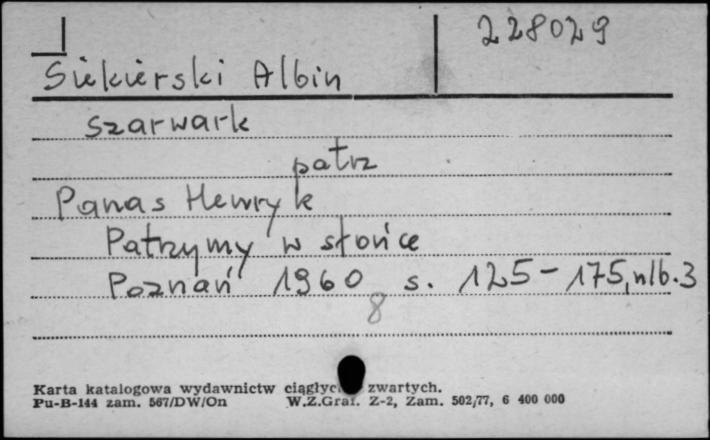 228029
Siekierski Albin
Szarwark
patrz
Panas Henryk
Patrzymy w słońce
Poznań 1960 s. 125-175, nlb. 3
8
Karta katalogowa wydawnictw zwartych.
Pu-B-144 zam. 567/DW/On W.Z.Graf. Z-2, Zam. 502/77, 6 400 000